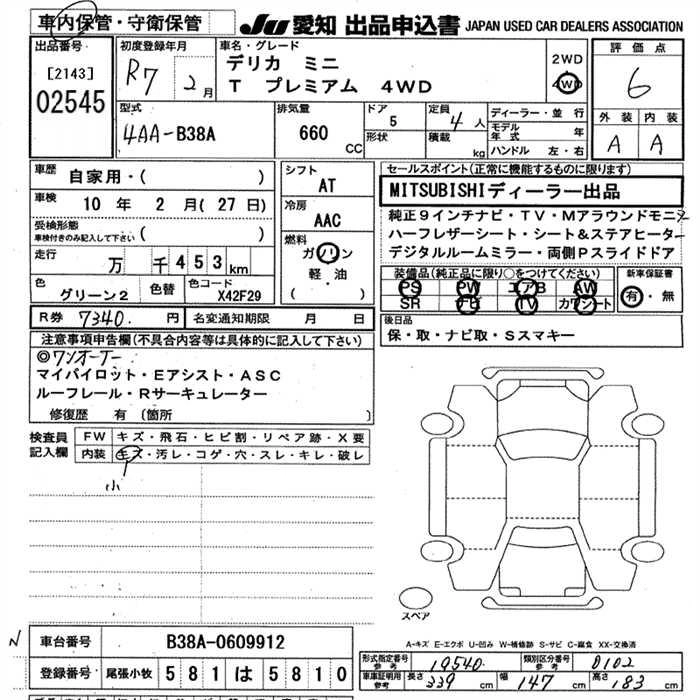 車内保管・守衛保管 JU 愛知 出品申込書 JAPAN USED CAR DEALERS ASSOCIATION
出品番号 [2143] 02545
初度登録年月 R7 2月
車名・グレード
デリカ ミニ
T プレミアム 4WD
2WD
4WD
評価点 6
外装 A 内装 A
型式 4AA-B38A
排気量 660 CC
ドア 5
形状
定員 4人
積載 kg
ディーラー・並行
モデル年式 年
ハンドル 左・右
車歴 自家用・( )
車検 10年 2月(27日)
受検形態
車検付きのみ記入して下さい ( )
走行 万 千453km
色 グリーン2 色替 色コード X42F29
シフト AT
冷房 AAC
燃料 ガソリン
軽・油
( )
セールスポイント(正常に機能するものに限ります)
MITSUBISHIディーラー出品
純正9インチナビ・TV・Mアラウンドモニタ
ハーフレザーシート・シート&ステアヒーター
デジタルルームミラー・両側Pスライドドア
装備品(純正品に限り○をつけてください)
PS PW エアB AW
SR ナビ TV カワシート
新車保証書
有・無
R券 7340 円 名変通知期限 月 日
後日品
保・取・ナビ取・Sスマキー
注意事項申告欄(不具合内容等は具体的に記入して下さい)
◎ワンオーナー
マイパイロット・Eアシスト・ASC
ルーフレール・Rサーキュレーター
修復歴 有(箇所 )
検査員記入欄
FW キズ・飛石・ヒビ割・リペア跡・X要
内装 キズ・汚レ・コゲ・穴・スレ・キレ・破レ
小
スペア
A-キズ E-エクボ U-凹み W-補修跡 S-サビ C-腐食 XX-交換済
N 車台番号 B38A-0609912
登録番号 尾張小牧 581は5810
形式指定番号 参考 19540 類別区分番号 参考 0102
車庫証明用 参考 長さ 339 cm 幅 147 cm 高さ 183 cm